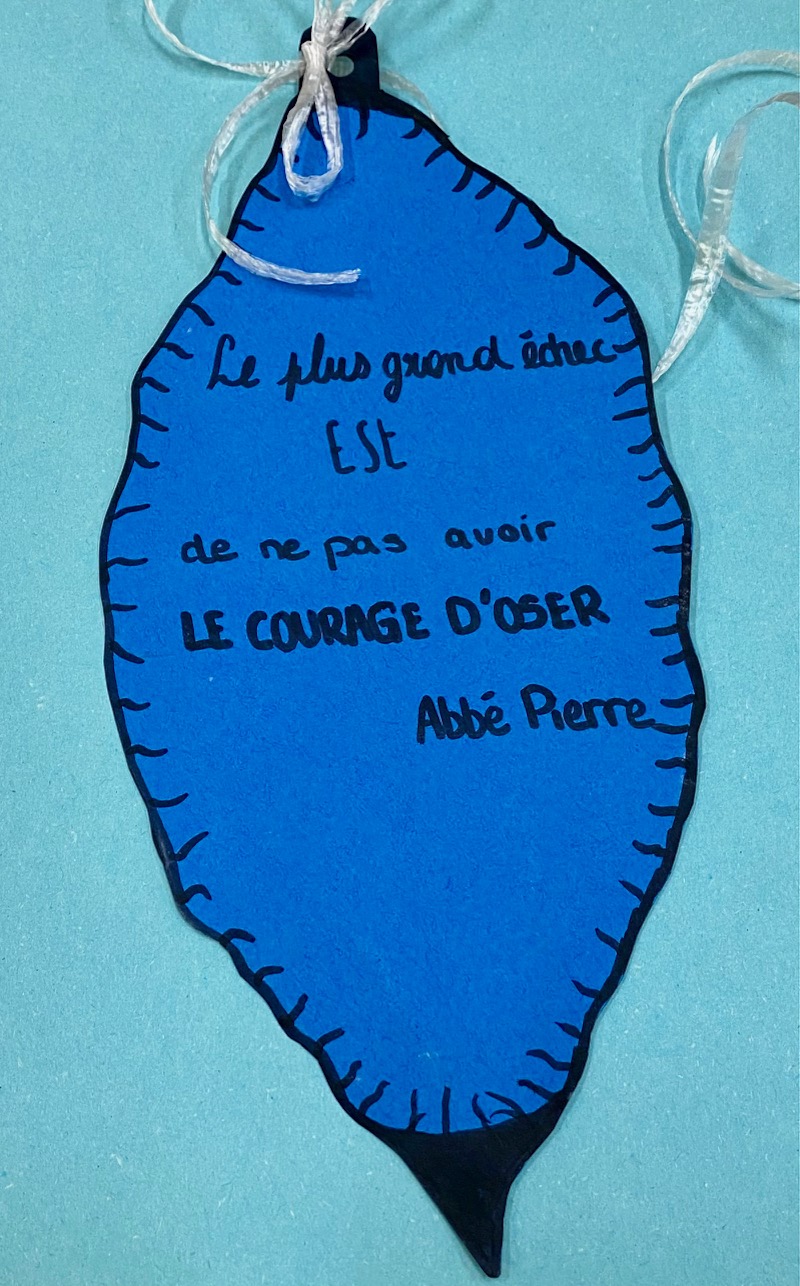 Le plus grand échec
ESt
de ne pas avoir
LE COURAGE D'OSER
Abbé Pierre